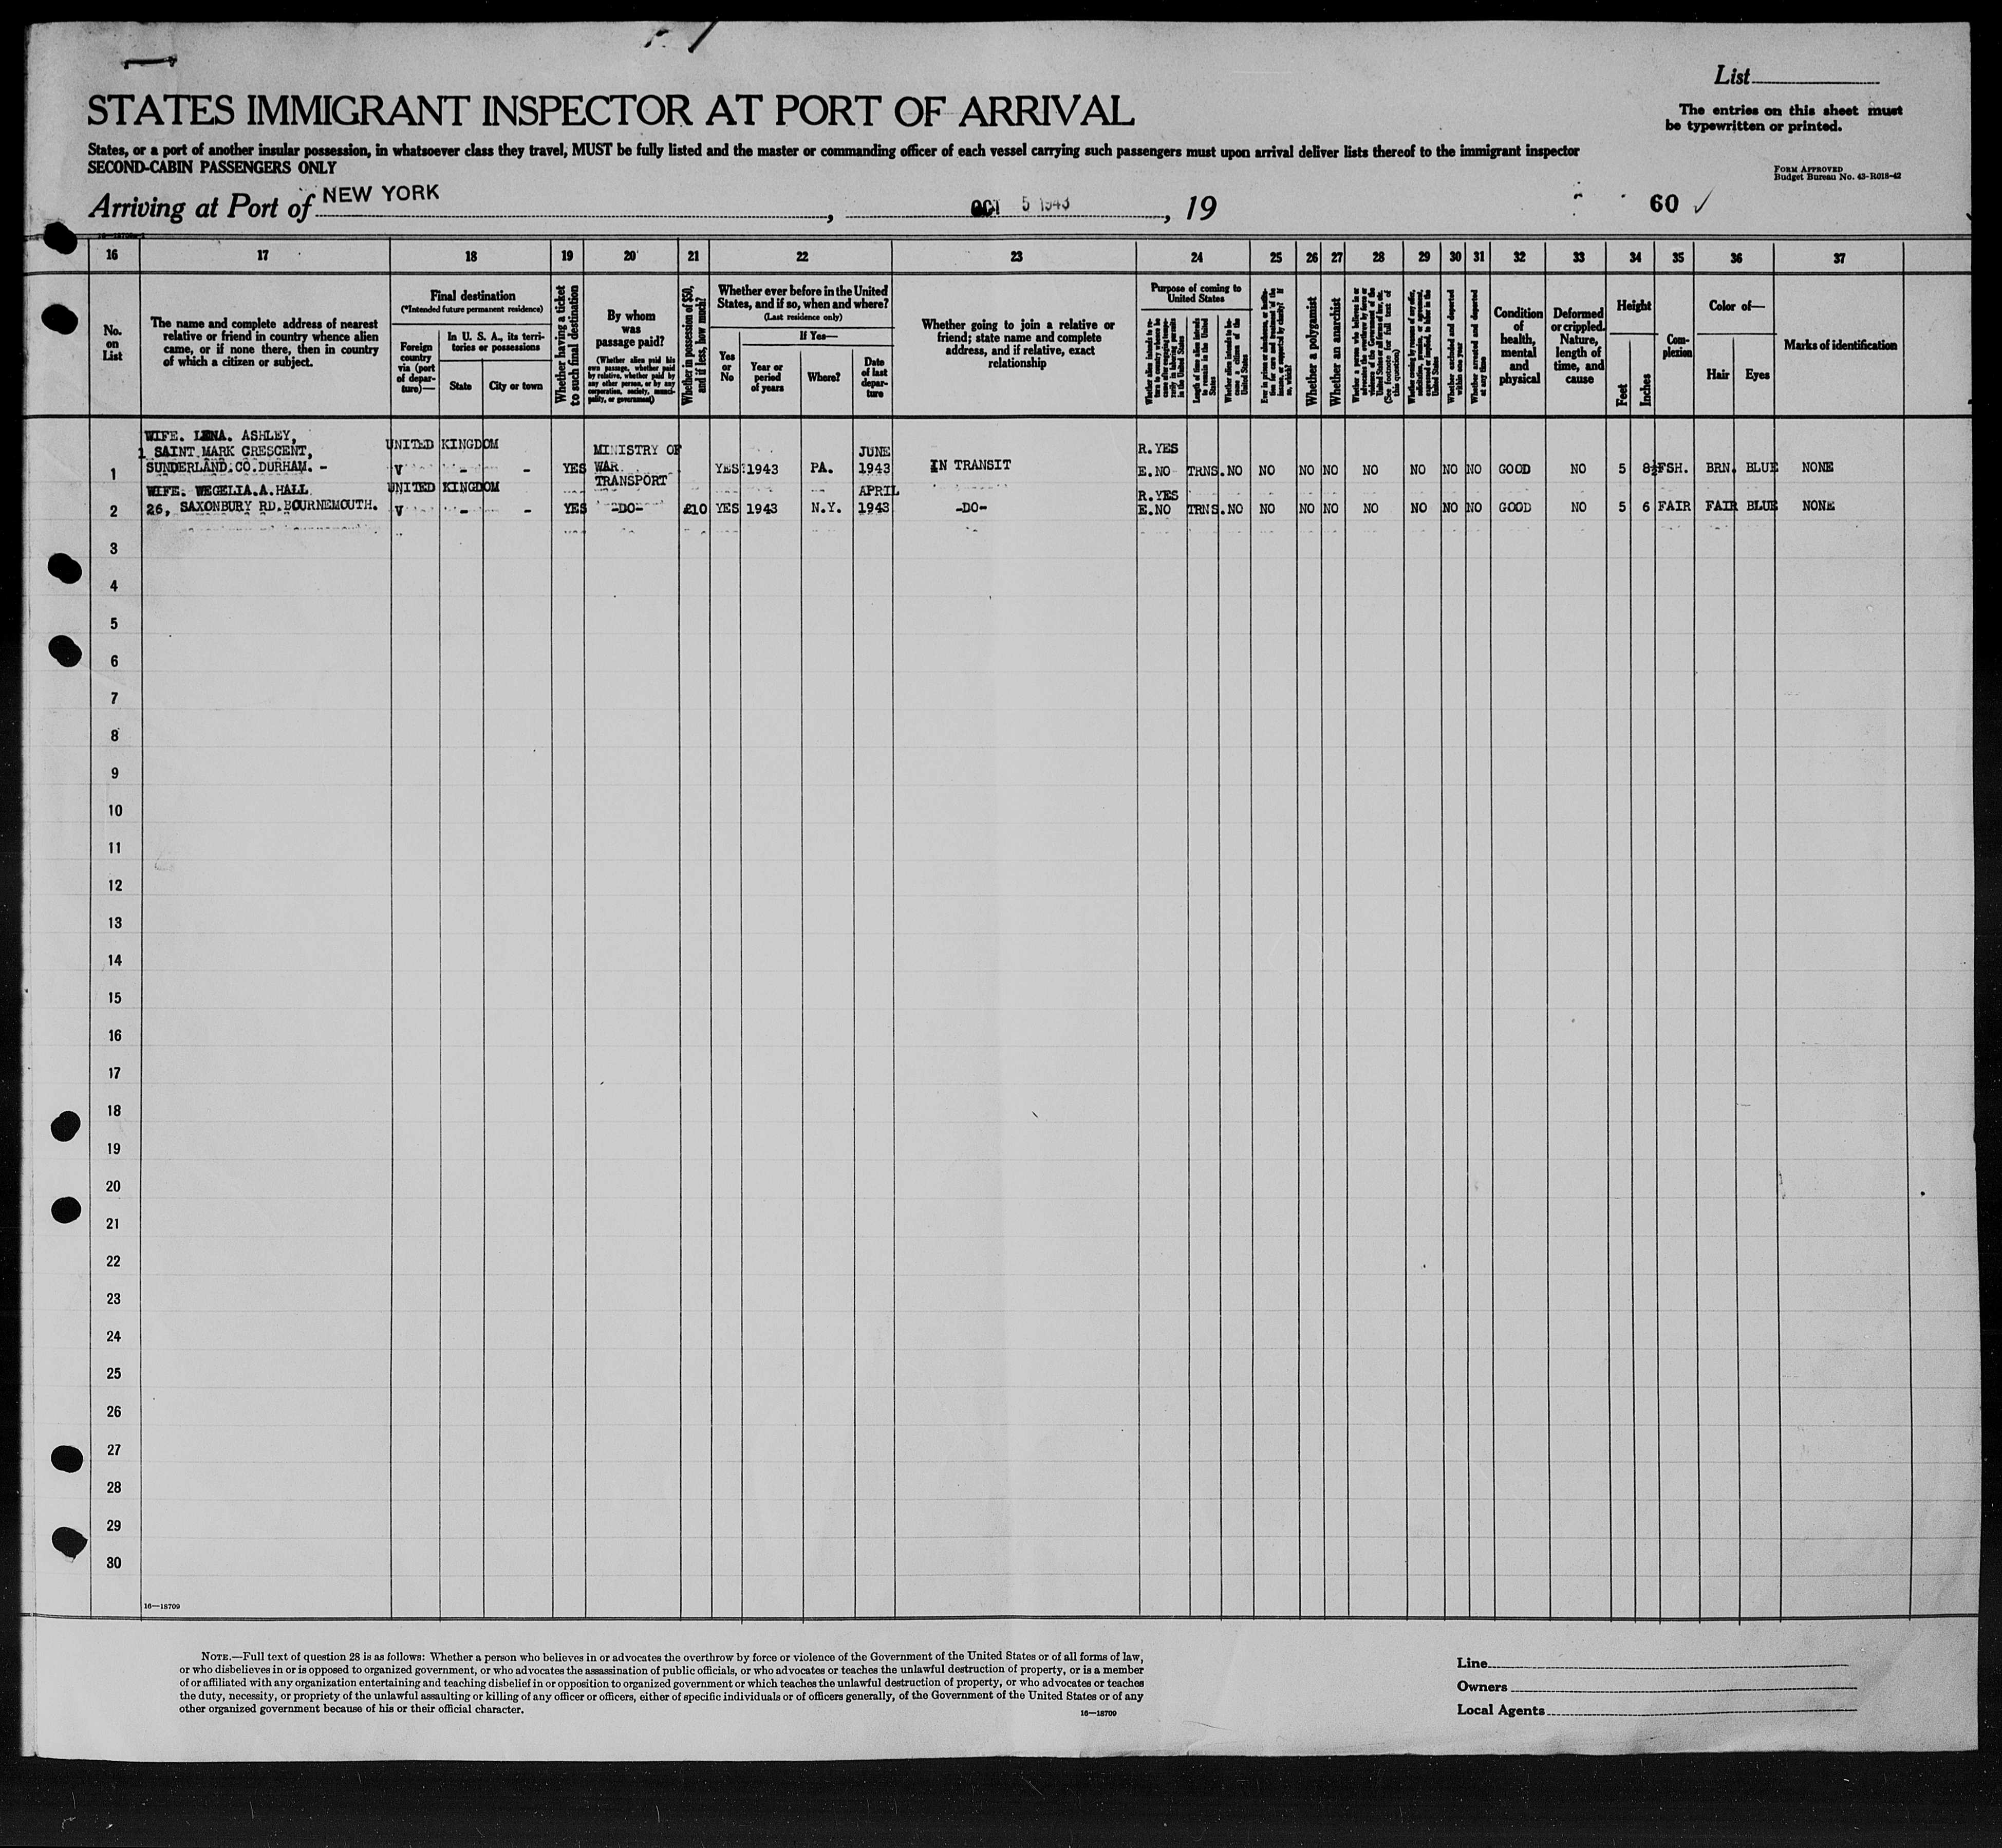 List
STATES IMMIGRANT INSPECTOR AT PORT OF ARRIVAL
The entries on this sheet must
be typewritten or printed.
States, or a port of another insular possession, in whatsoever class they travel, MUST be fully listed and the master or commanding officer of each vessel carrying such passengers must upon arrival deliver lists thereof to the immigrant inspector
SECOND-CABIN PASSENGERS ONLY
FORM APPROVED
Budget Bureau No. 43-R018-42
Arriving at Port of NEW YORK, OCT 5 1943, 19
60 ✓
16 17 18 19 20 21 22 23 24 25 26 27 28 29 30 31 32 33 34 35 36 37
No.
on
List
The name and complete address of nearest
relative or friend in country whence alien
came, or if none there, then in country
of which a citizen or subject.
Final destination
(*Intended future permanent residence)
Foreign
country
via (port
of depar-
ture)—
In U. S. A., its terri-
tories or possessions
State
City or town
Whether having a ticket
to such final destination
By whom
was
passage paid?
(Whether alien paid his
own passage, whether paid
by relative, whether paid by
any other person, or by any
corporation, society, munici-
pality, or government)
Whether in possession of $50,
and if less, how much?
Whether ever before in the United
States, and if so, when and where?
(Last residence only)
Yes
or
No
If Yes—
Year or
period
of years
Where?
Date
of last
depar-
ture
Whether going to join a relative or
friend; state name and complete
address, and if relative, exact
relationship
Purpose of coming to
United States
Whether alien intends to re-
turn to country whence he
came after engaging tempo-
rarily in laboring pursuits
in the United States
Length of time alien intends
to remain in the United
States
Whether alien intends to be-
come a citizen of the
United States
Whether a polygamist
Whether an anarchist
Whether a person who believes in or
advocates the overthrow by force or
violence of the Government of the
United States or all forms of law, etc.
(See footnote for full text of
this question)
Whether excluded and deported
within one year
Whether arrested and deported
at any time
Condition
of
health,
mental
and
physical
Deformed
or crippled.
Nature,
length of
time, and
cause
Height
Feet
Inches
Com-
plexion
Color of—
Hair
Eyes
Marks of identification
WIFE. LENA. ASHLEY,
1 SAINT MARK CRESCENT,
SUNDERLAND.CO.DURHAM. -
1 UNITED KINGDOM V - - YES MINISTRY OF WAR TRANSPORT YES 1943 PA. JUNE 1943 IN TRANSIT R.YES E.NO TRNS. NO NO NO NO NO NO NO NO GOOD NO 5 8½ FSH. BRN. BLUE NONE
WIFE. WEGELIA.A.HALL
26, SAXONBURY RD.BOURNEMOUTH.
2 UNITED KINGDOM V - - YES -DO- £10 YES 1943 N.Y. APRIL 1943 -DO- R.YES E.NO TRNS. NO NO NO NO NO NO NO NO GOOD NO 5 6 FAIR FAIR BLUE NONE
3
4
5
6
7
8
9
10
11
12
13
14
15
16
17
18
19
20
21
22
23
24
25
26
27
28
29
30
16—18709
NOTE.—Full text of question 28 is as follows: Whether a person who believes in or advocates the overthrow by force or violence of the Government of the United States or of all forms of law,
or who disbelieves in or is opposed to organized government, or who advocates the assassination of public officials, or who advocates or teaches the unlawful destruction of property, or is a member
of or affiliated with any organization entertaining and teaching disbelief in or opposition to organized government or which teaches the unlawful destruction of property, or who advocates or teaches
the duty, necessity, or propriety of the unlawful assaulting or killing of any officer or officers, either of specific individuals or of officers generally, of the Government of the United States or of any
other organized government because of his or their official character.
16—18709
Line
Owners
Local Agents